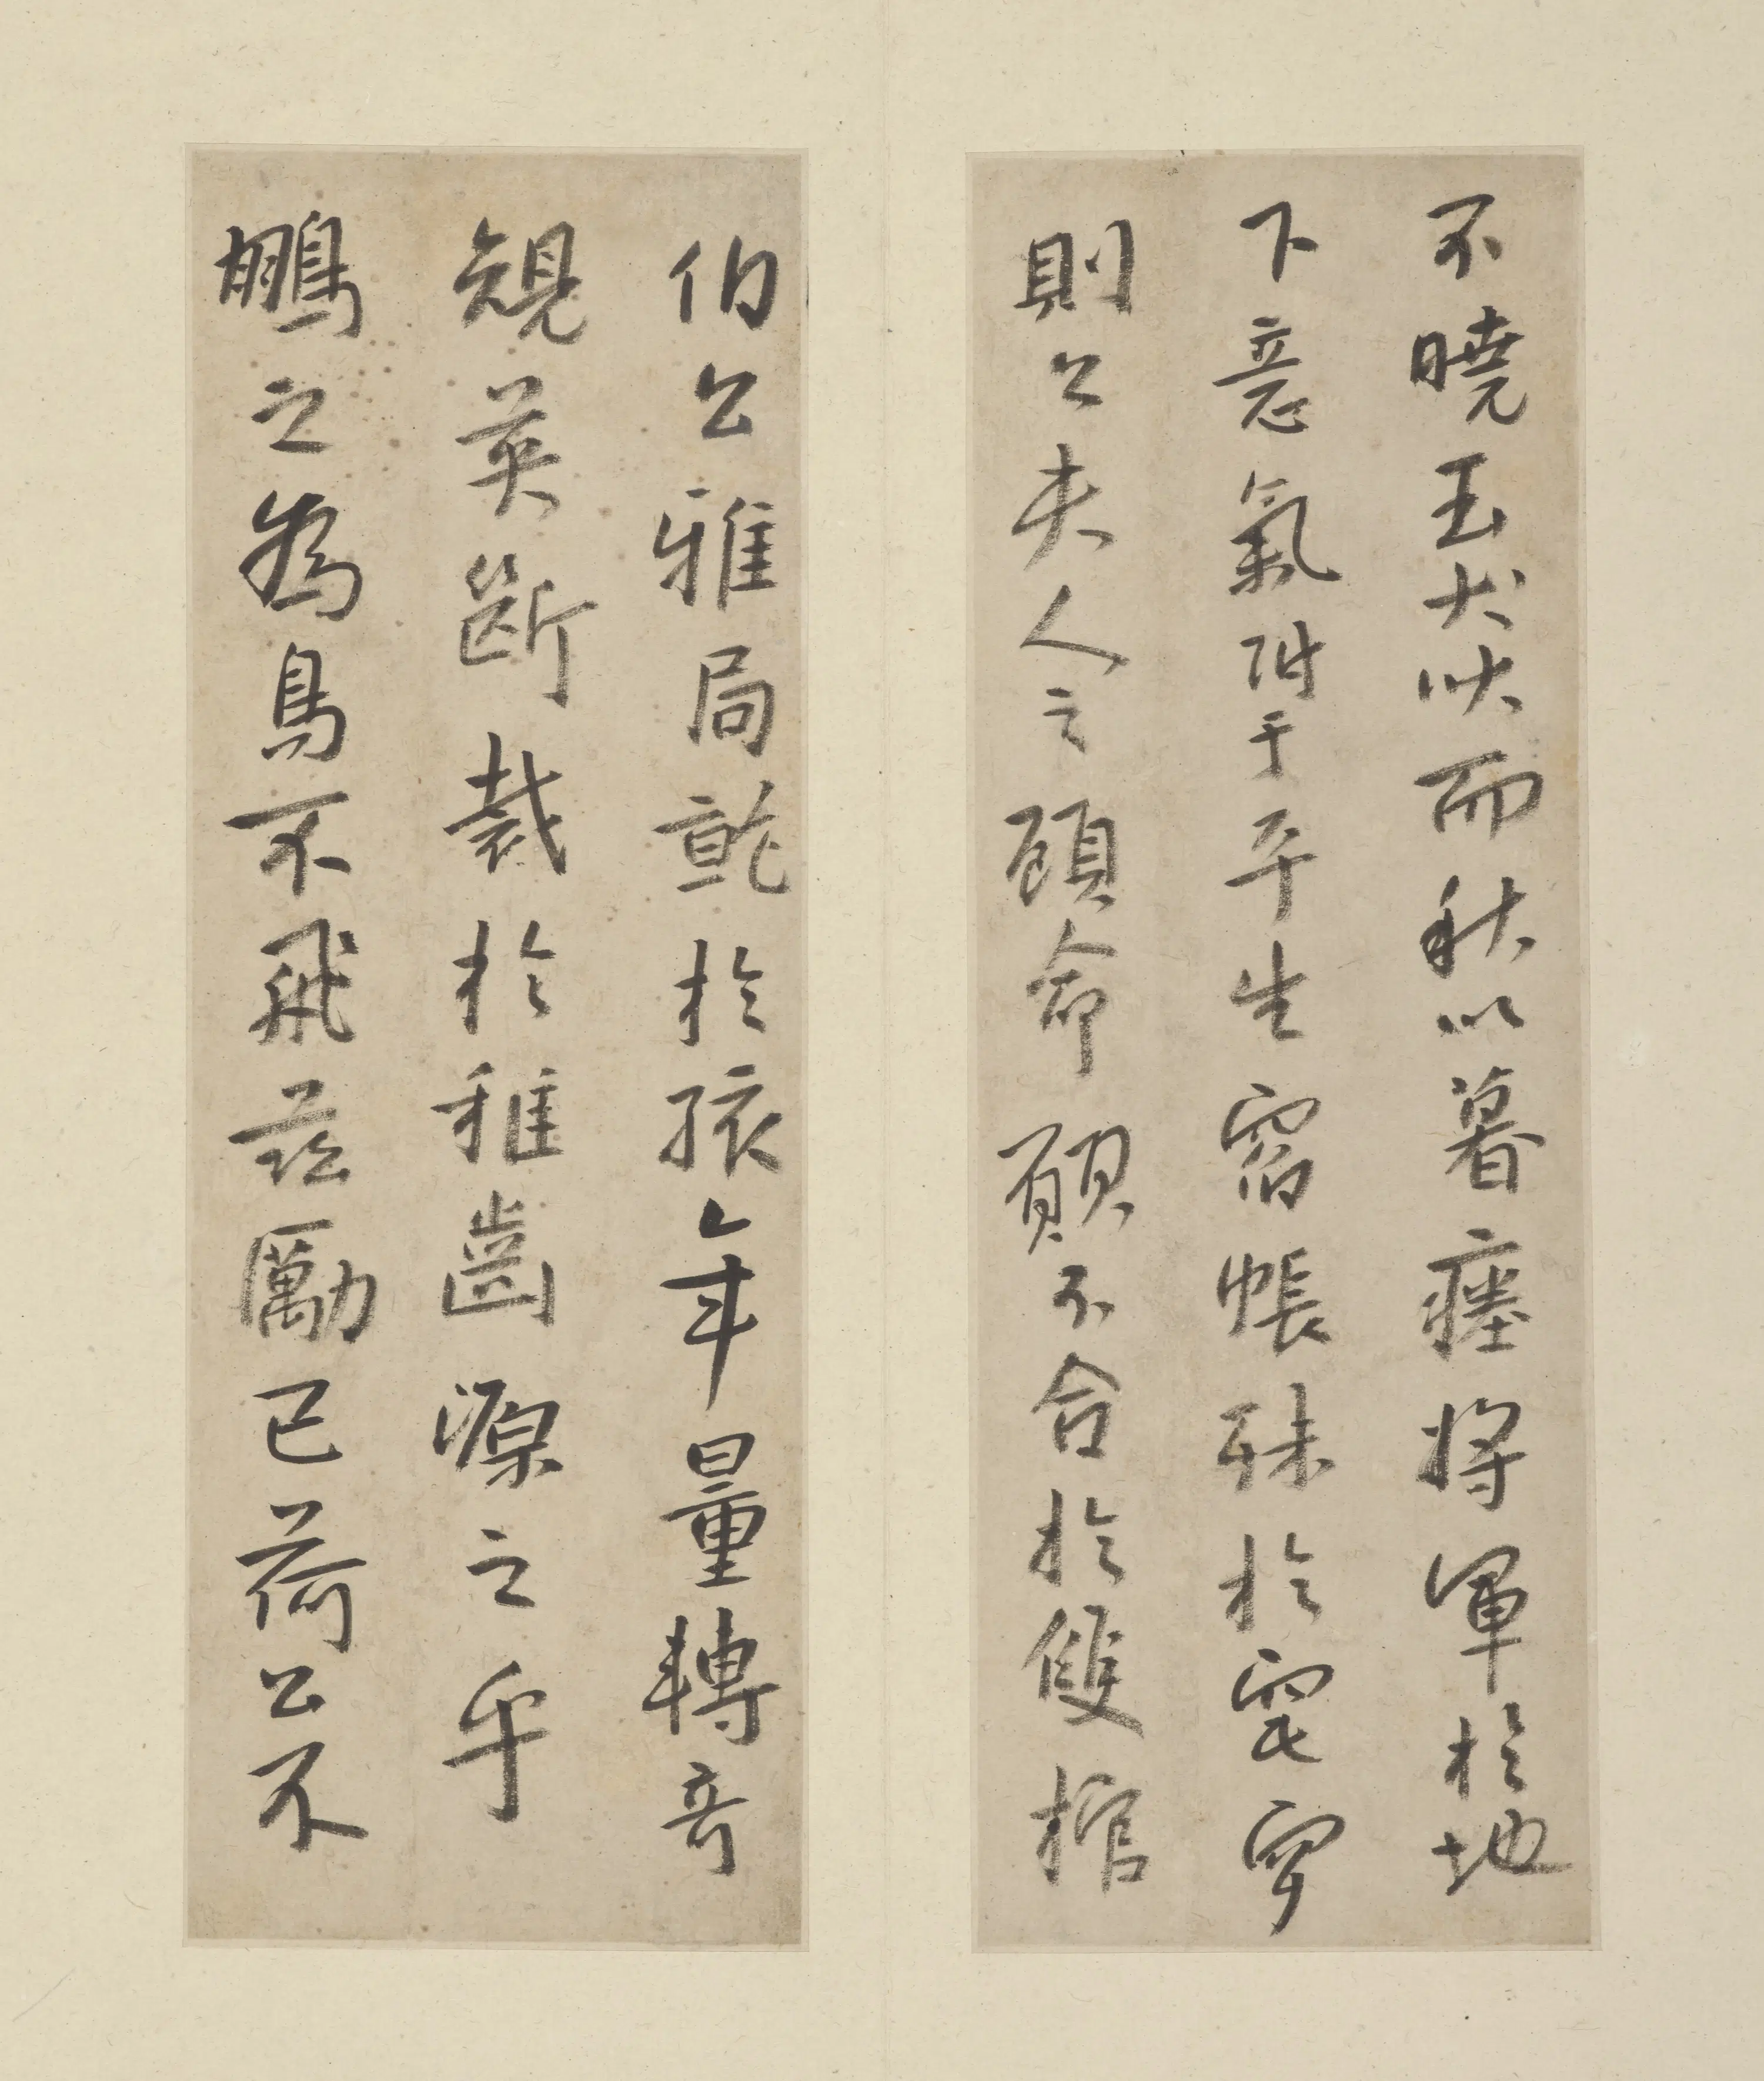 不曉玉犬吠而秋以暮瘞將軍於地
下意氣附于平生宿帳殊於窀穸
則公夫人之顧命願不合於雙棺
伯公雅局乾於孩年量轉奇
規英斷裁於稚齒源之乎
鵬之為鳥不飛茲勵已荷公不